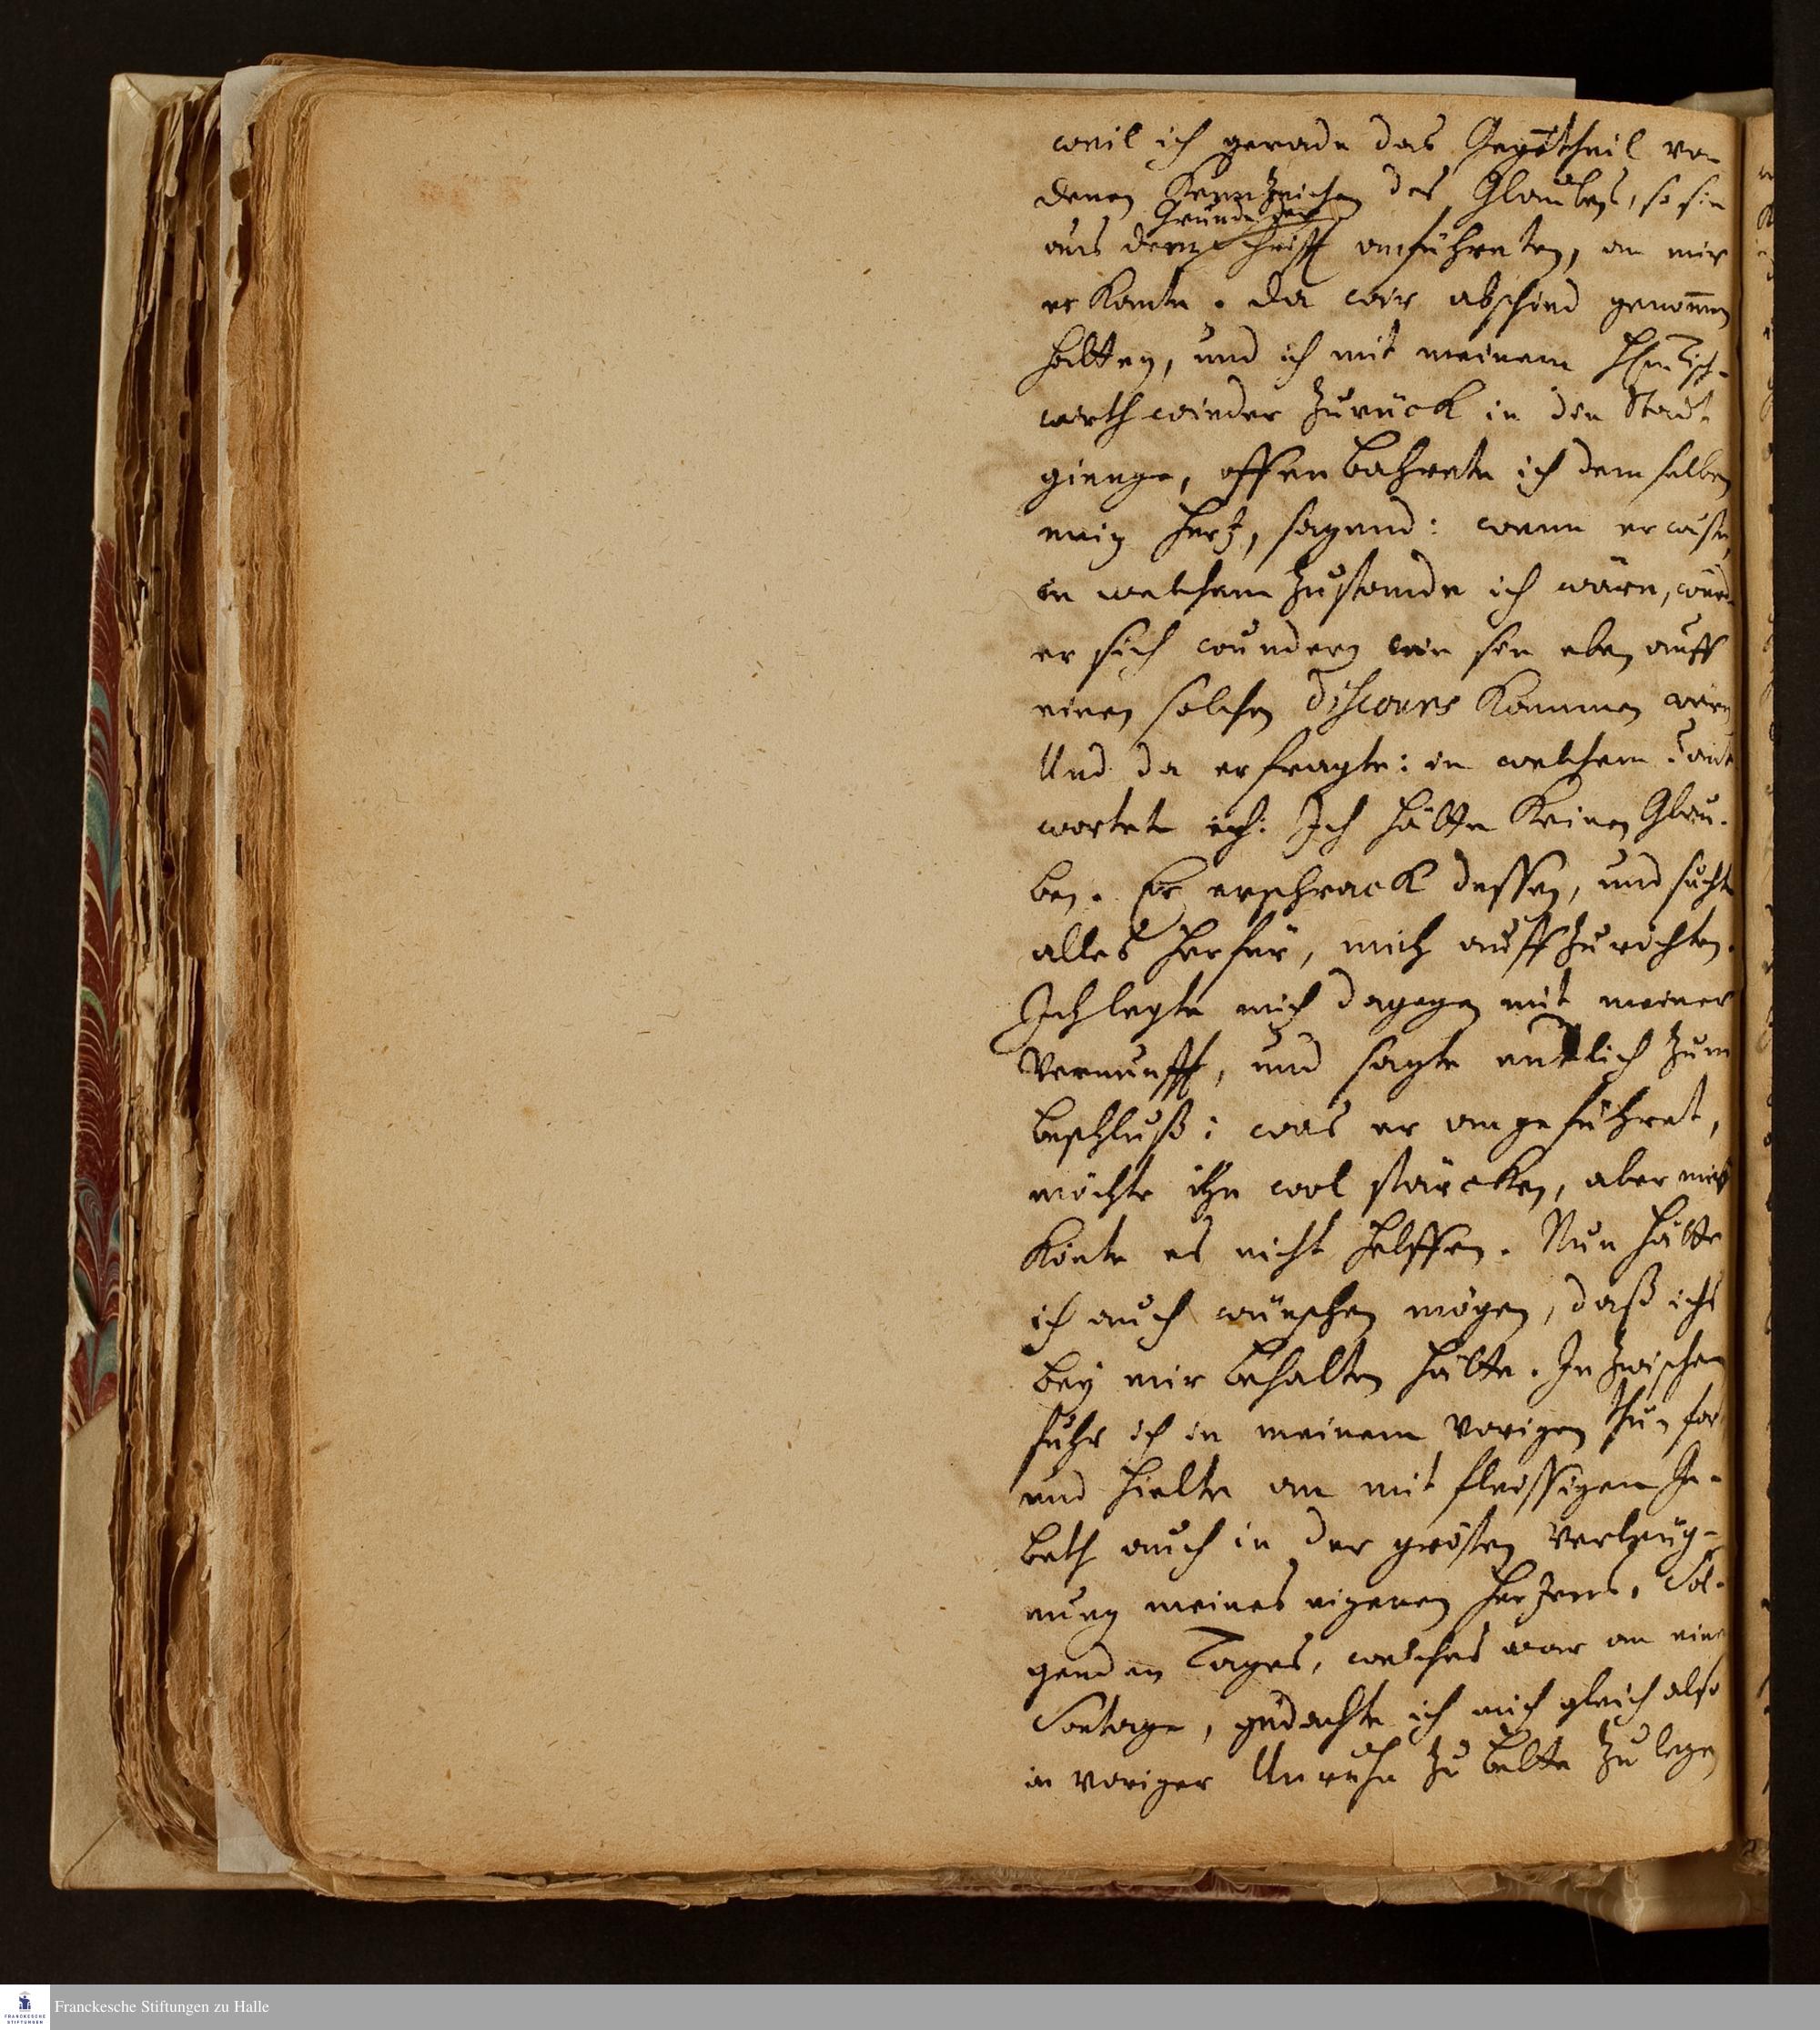 weil ich gerade das Gegentheil von
denen Kennzeichen des Glaubens, so sie
Grunde der
aus dem Schrifft anführeten, an mir
erkante. Da wir abschied genom̅en
hatten, und ich mit meinem Hn. Tisch-
wirth wieder zurück in die Stadt
gienge, offenbahrete ich demselben
mein Hertz, sagend: wenn er wüste,
in welchem Zustande ich wäre, würde
er sich wundern wie sie eben auff
einen solchen discours kommen wären
Und da er fragte: in welchem? ant
wortete ich: Ich hätte keinen Glau-
ben. Er erschrack dessen, und suchte
alles herfür, mich auffzurichten.
Ich legte mich dagegen mit meiner
Vernunfft, und sagte entlich zum
beschluß: was er angeführet,
möchte ihn wol stärcken, aber mir
könte es nicht helffen. Nun hätte
ich auch wünschen mögen, daß ichs
bey mir behalten hätte. In zwischen
fuhr ich in meinem vorigen thun fort
und hielte an mit fleissigem Ge-
beth auch in der grösten Verleug-
nung meines eigenen Hertzens. Fol-
genden Tages, welches war an einem
Sontage, gedachte ich mich gleich also
in voriger Unruhe zu bette zu legen
Franckesche Stiftungen zu Halle
FRANCKESCHE
STIFTUNGEN